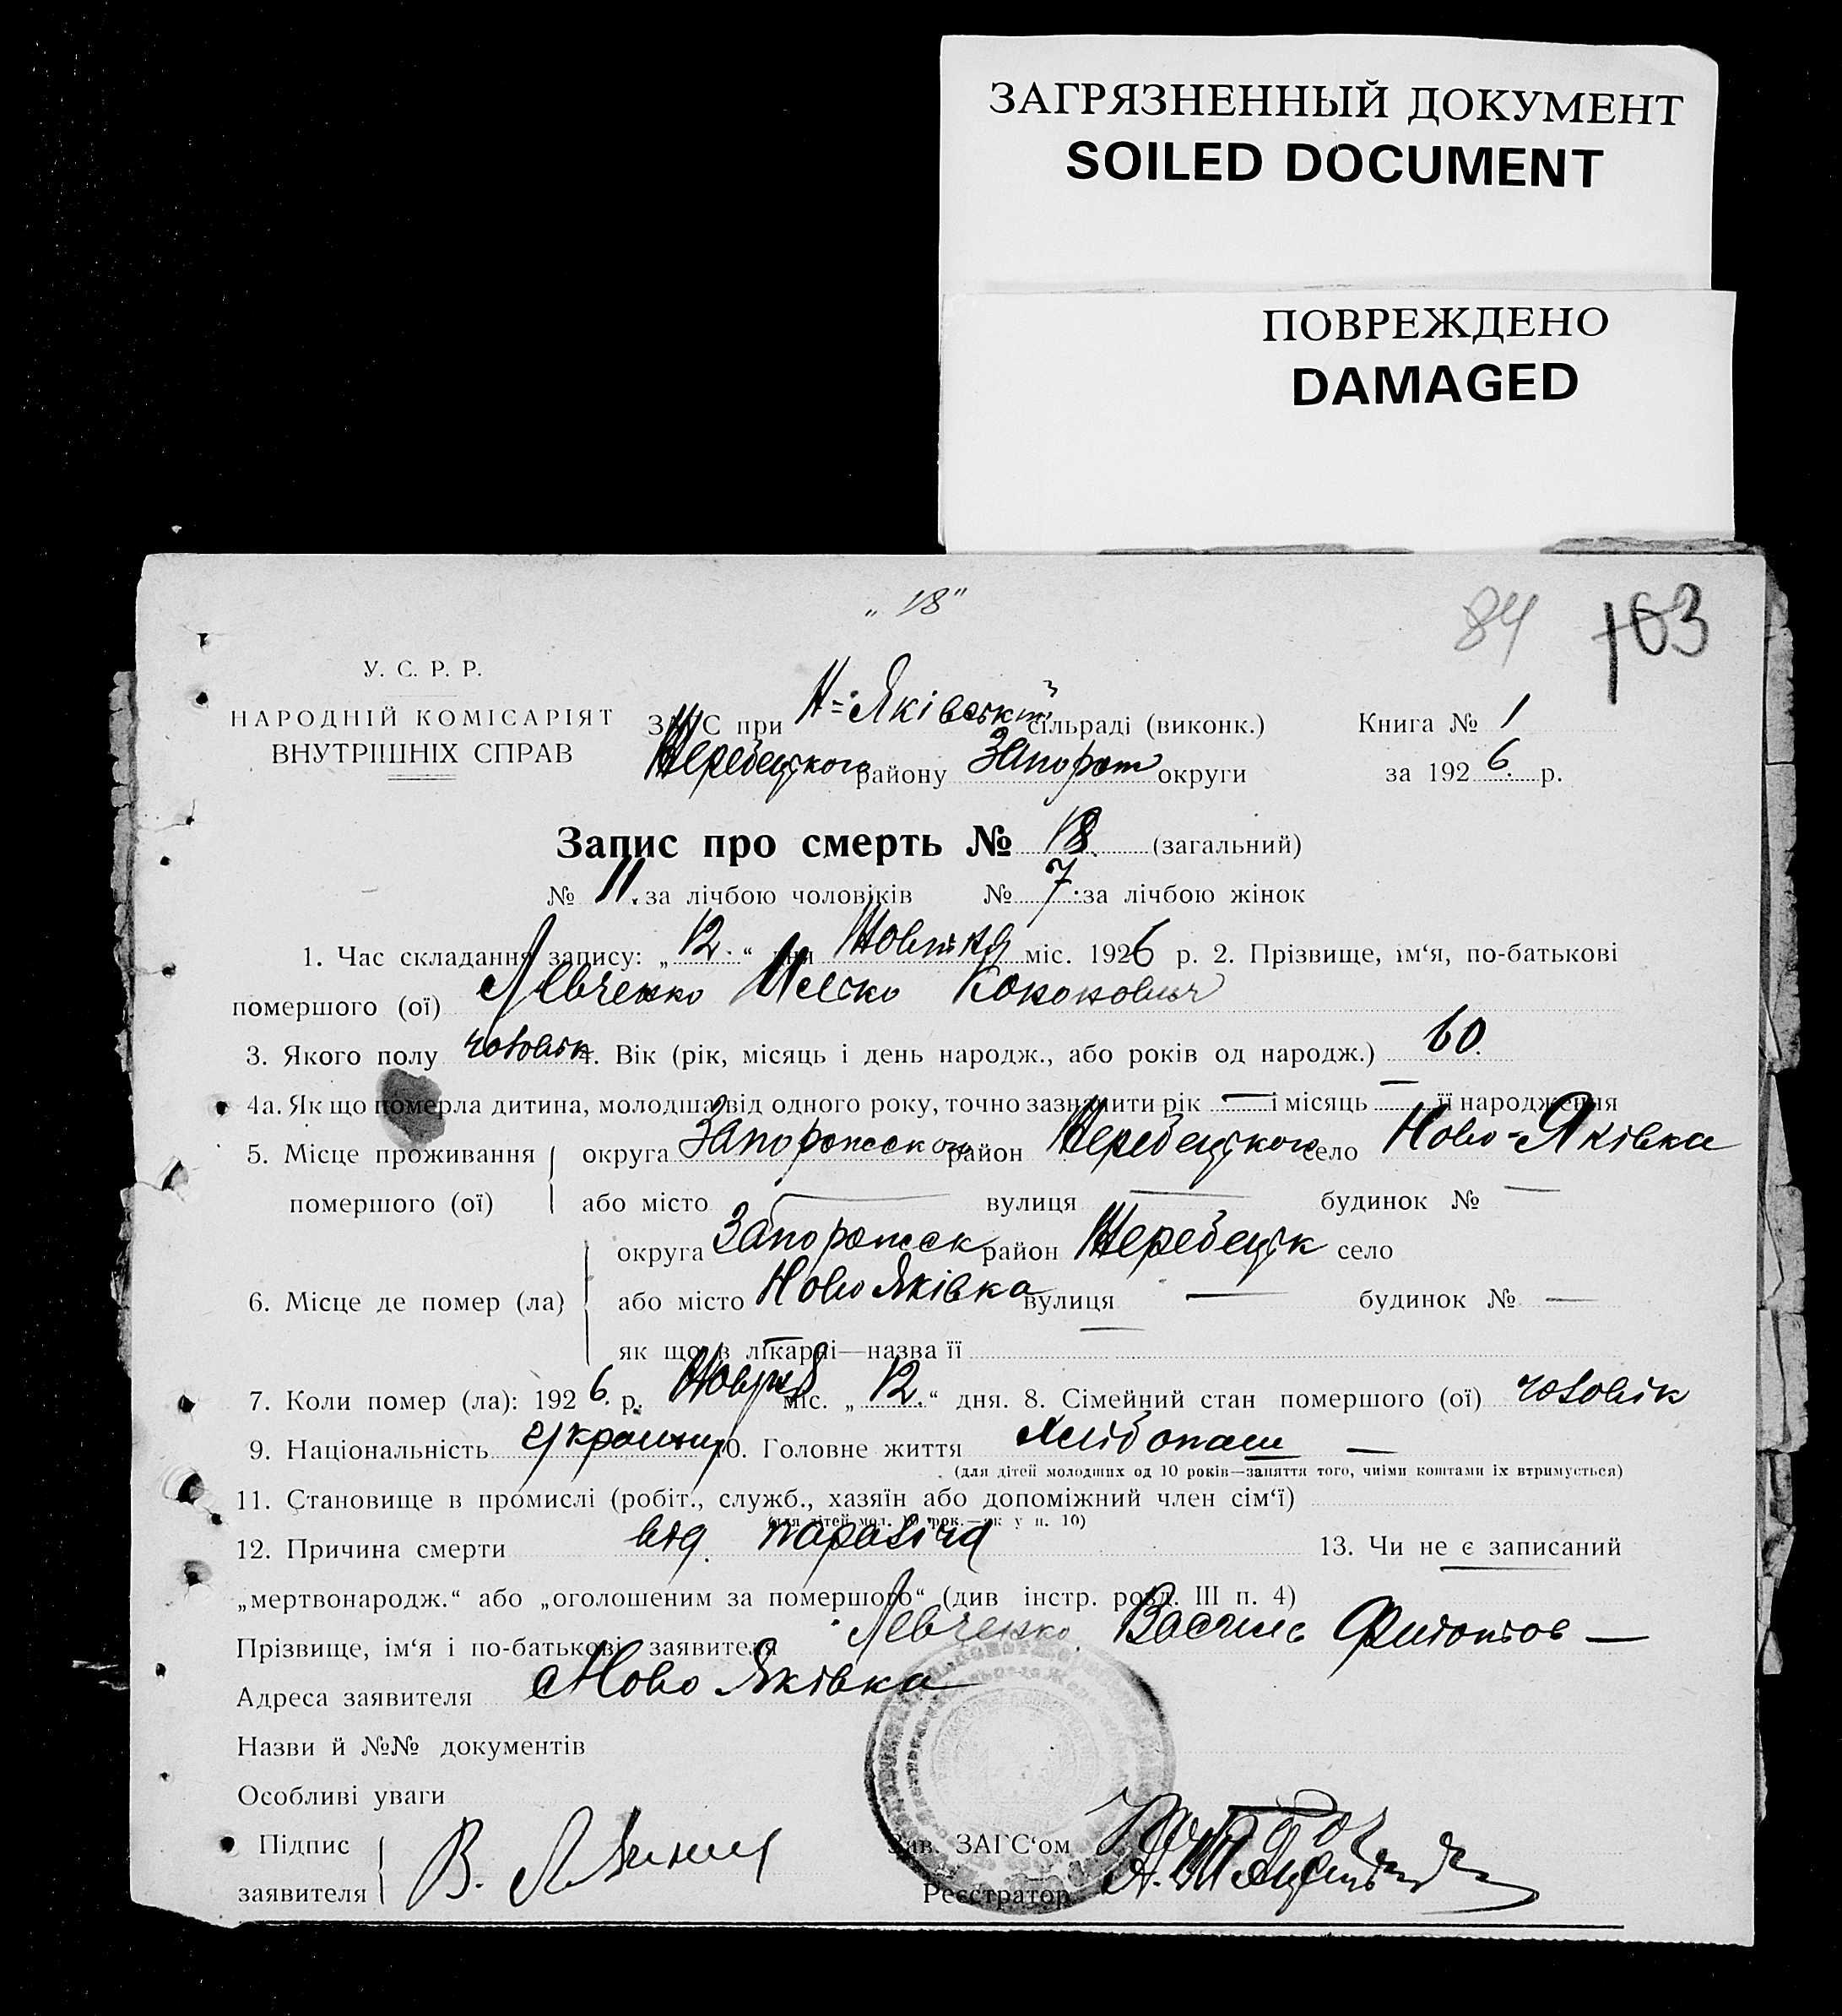 ЗАГРЯЗНЕННЫЙ ДОКУМЕНТ
SOILED DOCUMENT
ПОВРЕЖДЕНО
DAMAGED
„ 18 "
84 103
У. С. Р. Р.
НАРОДНІЙ КОМІСАРІЯТ
ВНУТРІШНІХ СПРАВ
ЗАГС при Н=Яківській сільраді (виконк.) Книга № 1
Жеребецького району Запорож округи за 1926. р.
Запис про смерть № 18. (загальний)
№ 11. за лічбою чоловіків № 7. за лічбою жінок
1. Час складання запису: „ 12. “ дня Жовтня міс. 1926 р. 2. Прізвище, ім'я, по-батькові
помершого (ої) Левченко
3. Якого полу чоловік 4. Вік (рік, місяць і день народж., або років од народж.) 60.
4а. Як що померла дитина, молодша від одного року, точно зазначити рік — і місяць — її народження
5. Місце проживання округа район село Ново-Яківка
помершого (ої) або місто — вулиця — будинок № —
округа Запорожск район Жеребецьк село
6. Місце де помер (ла) або місто Ново Яківка вулиця — будинок № —
як що в лікарні—назва її —
7. Коли помер (ла): 1926. р. Жовтня міс. „ 12. “ дня. 8. Сімейний стан помершого (ої) чоловік
9. Національність 10. Головне життя Хлібопаш —
(для дітей молодших од 10 років—заняття того, чиїми коштами їх втримується)
11. Становище в промислі (робіт., служб., хазяїн або допоміжний член сім'ї)
(для дітей мол. 10 рок.—як у п. 10)
12. Причина смерти від. параліча 13. Чи не є записаний
„мертвонародж.“ або „оголошеним за помершого“ (див інстр. розд. III п. 4)
Прізвище, ім'я і по-батькові заявителя Левченко Василь —
Адреса заявителя Ново Яківка
Назви й №№ документів
Особливі уваги
Підпис
заявителя В.
Зав. ЗАГС'ом
Реєстратор